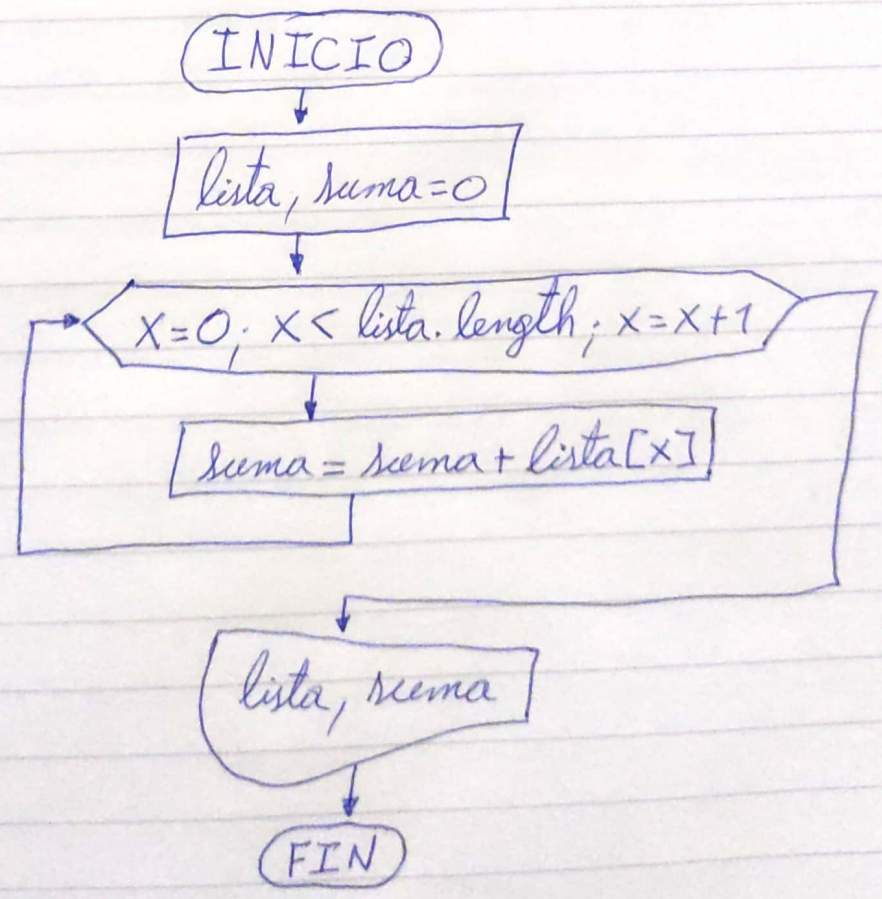 INICIO
lista, suma=0
X=0; X< lista.length; X=X+1
suma = suma + lista[X]
lista, suma
FIN